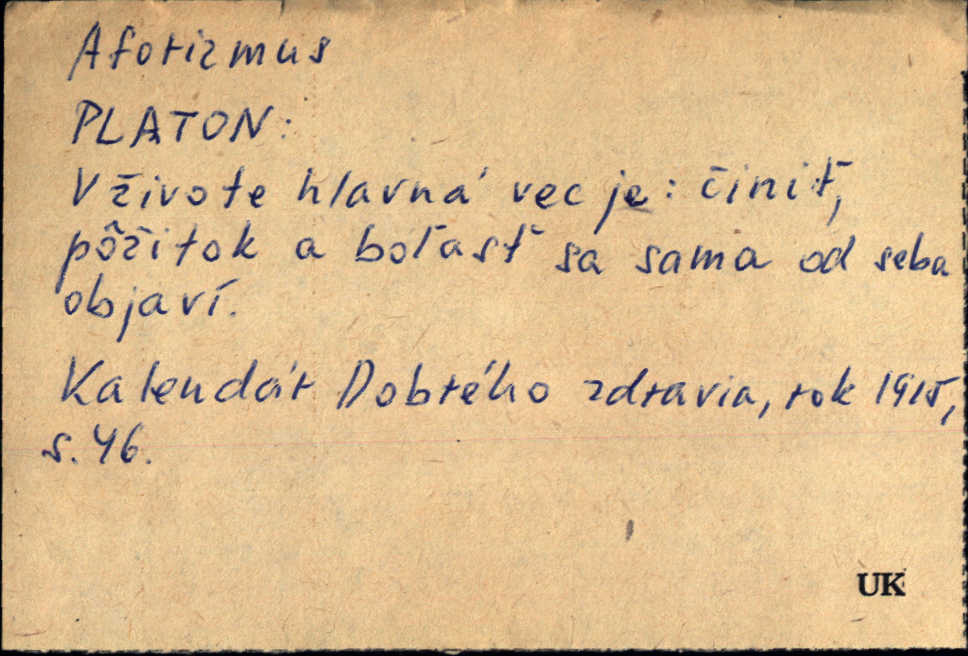 Aforizmus
PLATON:
V živote hlavná vec je: činiť,
pôžitok a boľasť sa sama od seba
objaví.
Kalendár Dobrého zdravia, rok 1915,
s. 46.
UK